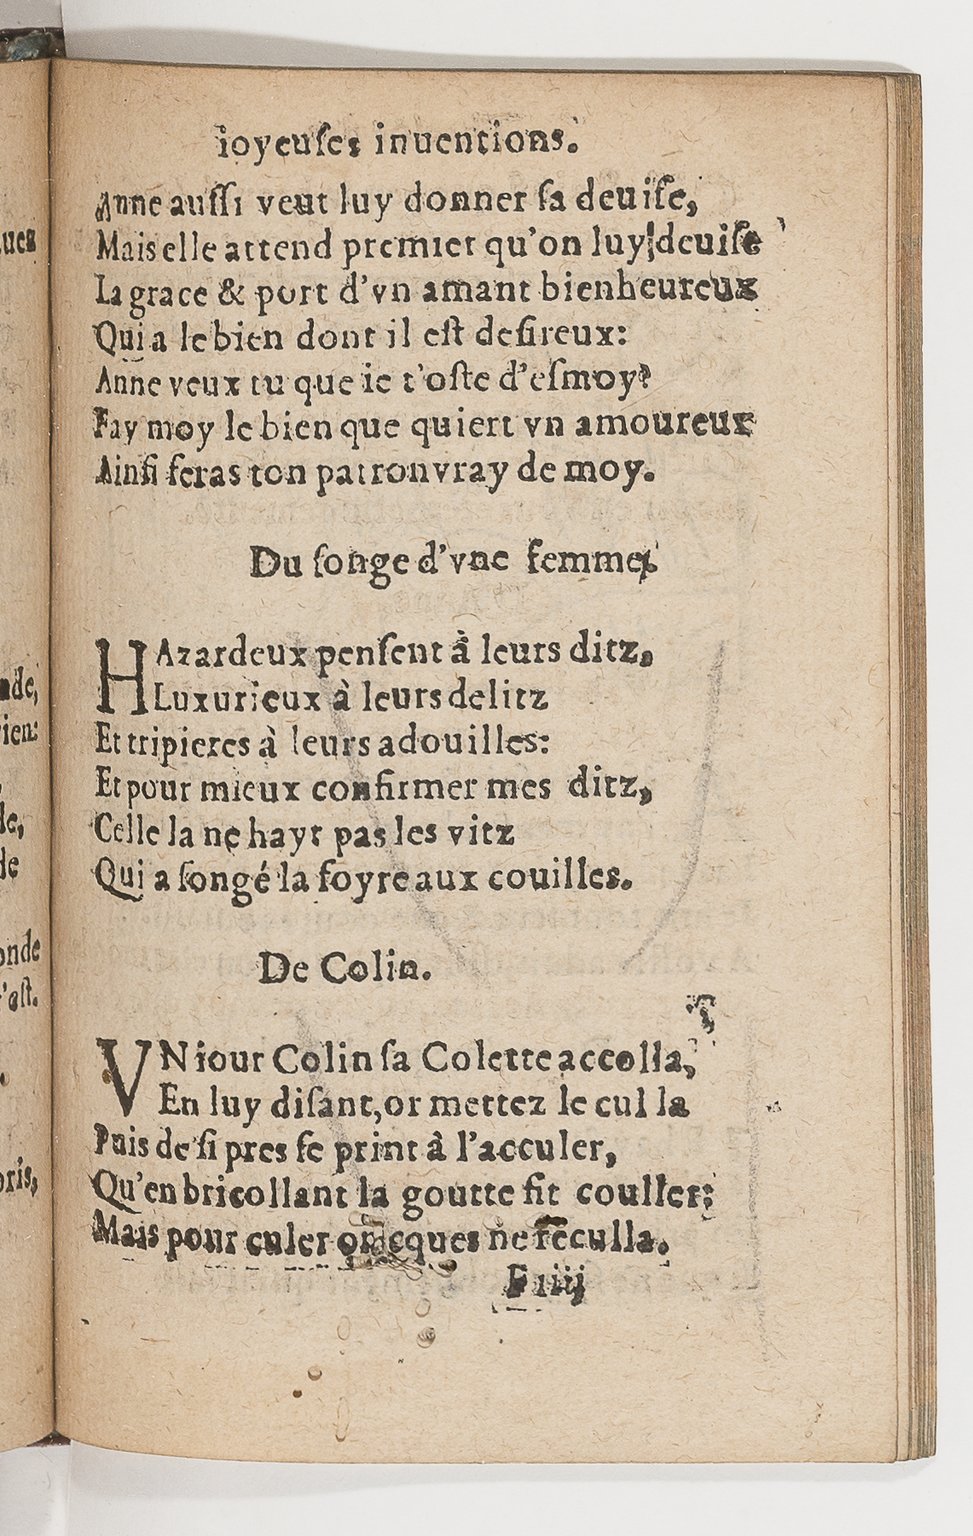 ioyeuſes inuentions.
Anne auſſi veut luy donner ſa deuiſe,
Mais elle attend premier qu'on luy deuiſe
La grace & port d'vn amant bienheureux
Qui a le bien dont il eſt deſireux:
Anne veux tu que ie t'oſte d'eſmoy?
Fay moy le bien que quiert vn amoureux
Ainſi feras ton patron vray de moy.
Du ſonge d'vne femme.
HAzardeux penſent à leurs ditz,
Luxurieux à leurs delitz
Et tripieres à leurs adouilles:
Et pour mieux confirmer mes ditz,
Celle la ne hayt pas les vitz
Qui a ſongé la foyre aux couilles.
De Colin.
VN iour Colin ſa Colette accolla,
En luy diſant, or mettez le cul la
Puis de ſi pres ſe print à l'acculer,
Qu'en bricollant la goutte fit couller:
Mais pour culer oncques ne reculla.
F iiij